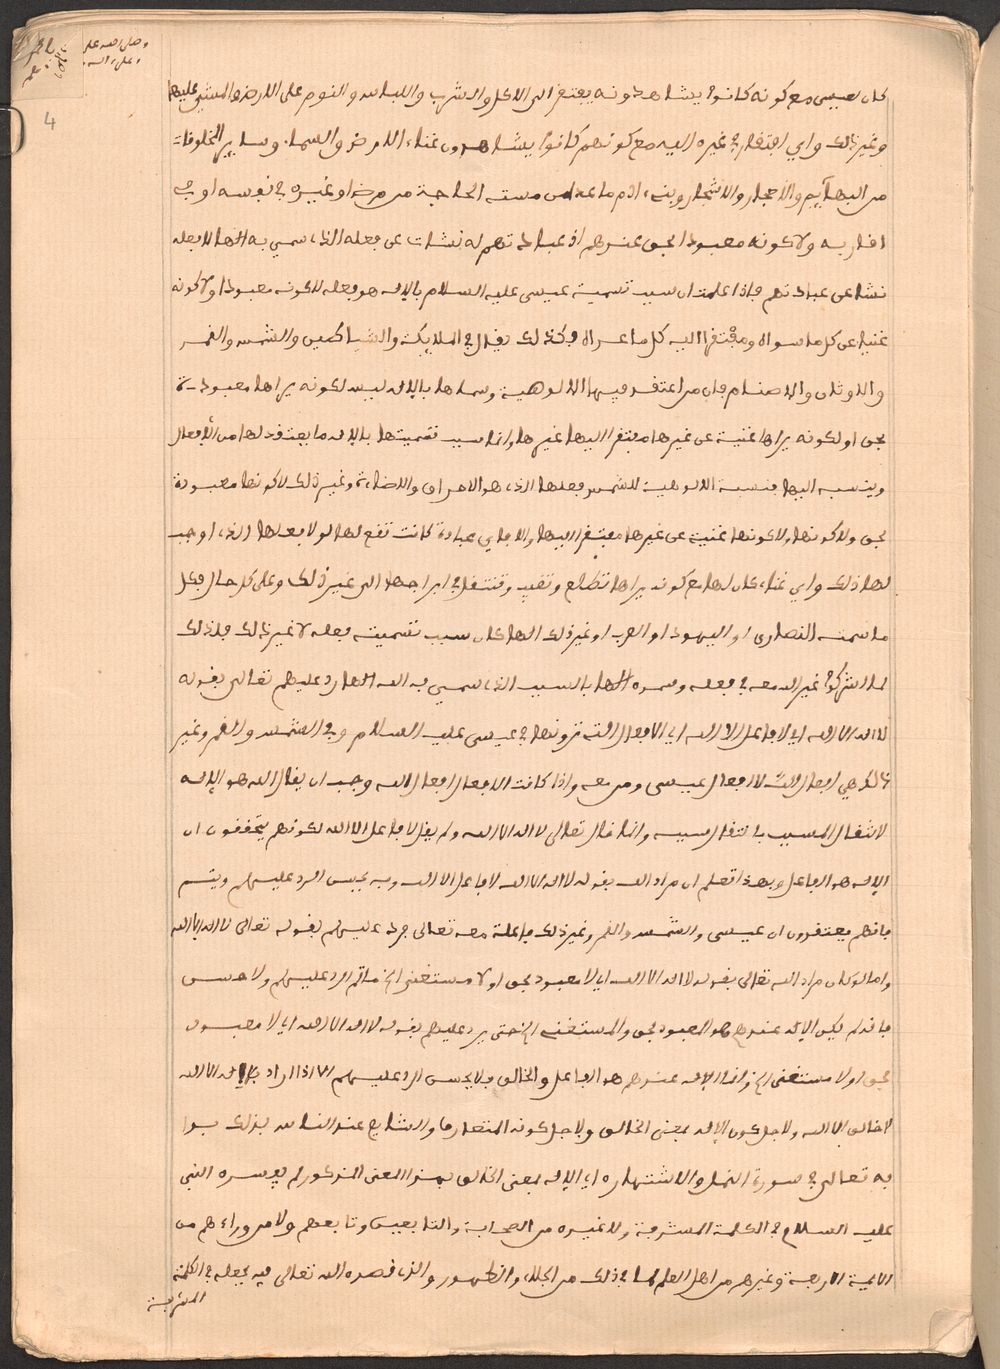 وصلى الله على
وعلى آله
4
كان لعيسى مع كونه كانوا يشاهدونه يفتقر الى الاكل والشرب واللباس والنوم على الارض والمشي عليها
وغير ذلك واي افتقار في غيره اليه مع كونهم كانوا يشاهدون غناء الارض والسماء وساير المخلوقات
من البهايم والاحجار والاشجار وبني ادم ما عدا من مسته الحاجة من مرض او غيره في نفسه او في
اقاربه ولا كونه معبودا بحق عندهم اذ عبادتهم له نشات عن فعله الذي سمي به الها لا فعله
نشا عن عبادتهم فاذا علمت ان سبب تسمية عيسى عليه السلام بالاله هو فعله لا كونه معبودا ولا كونه
غنيا عن كل ما سواه ومفتقرا اليه كل ما عداه فكذلك يقال في الملايكة والشياطين والشمس والقمر
والاوثان والاصنام فان من اعتقد فيها الالوهية وسماها بالاله ليس لكونه يراها معبودة
بحق او لكونه يراها غنية عن غيرها مفتقرا اليها غيرها وانما سبب تسميتها بالاله ما يعتقد لها من الافعال
وينسبه اليها فنسبة الالوهية للشمس فعلها الذي هو الاحراق والاضاءة وغير ذلك لا كونها معبودة
بحق ولا كونها غنية عن غيرها مفتقر اليها والا فاي عبادة كانت تقع لها لولا فعلها الذي اوجب
لها ذلك واي غناء كان لها مع كونه يراها تطلع وتغيب وتنتقل في ابراجها الى غير ذلك وعلى كل حال فكل
ما سمته النصارى او اليهود او العرب او غير ذلك الها كان سبب تسميته فعله لا غير ذلك فلذلك
لما اشركوا غير الله معه في فعله وسموه الها بالسبب الذي سمي به الله الها رد عليهم تعالى بقوله
لا اله الا الله اي لا فاعل الا الله اي الافعال التي ترونها في عيسى عليه السلام وفي الشمس والقمر وغير
ذلك هي افعال الله لا افعال عيسى ومن معه واذا كانت الافعال افعال الله وجب ان يقال الله هو الاله
لانتقال المسبب بانتقال سببه وانما قال تعالى لا اله الا الله ولم يقل لا فاعل الا الله لكونهم يتحققون ان
الاله هو الفاعل وبهذا تعلم ان مراد الله بقوله لا اله الا الله لا فاعل الا الله وبه يحسن الرد عليهم ويتم
فانهم يعتقدون ان عيسى والشمس والقمر وغير ذلك فاعلة معه تعالى فرد عليهم بقوله تعالى لا اله الا الله
واما لو كان مراد الله تعالى بقوله لا اله الا الله اي لا معبود بحق او لا مستغني الخ ما تم الرد عليهم ولا حسن
فانه لم يكن الاله عندهم هو المعبود بحق والمستغني الخ حتى يرد عليهم بقوله لا اله الا الله اي لا معبود
بحق او لا مستغني الخ وانما الاله عندهم هو الفاعل والخالق فلا يحسن الرد عليهم الا اذا اراد بلا اله الا الله
لا خالق الا الله ولاجل كون الاله بمعنى الخالق ولاجل كونه المتعارف والشايع عند الناس بذلك
به تعالى في سورة النمل والاشتهاره اي الاله بمعنى الخالق بهذا المعنى المذكور لم يفسره النبي
عليه السلام في الكلمة المشرفة ولا غيره من الصحابة والتابعين وتابعهم ولا من وراءهم من
الايمة الاربعة وغيرهم من اهل العلم لما في ذلك من الجلاء والظهور والذي قصده الله تعالى فيه بجعله في الكلمة
المشرفة